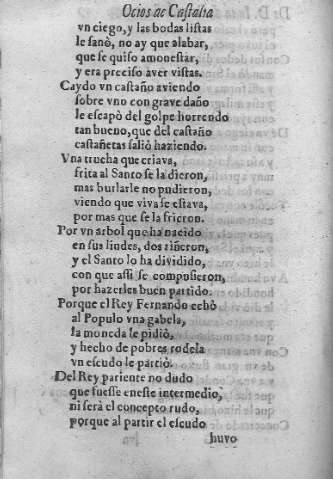 Ocios de Castalia
vn ciego, y las bodas listas
le sanò, no ay que alabar,
que se quiso amonestar,
y era preciso aver vistas.
Caydo vn castaño aviendo
sobre vno con grave daño
le escapò del golpe horrendo
tan bueno, que del castaño
castañetas saliò haziendo.
Vna trucha que criava,
frita al Santo se la dieron,
mas burlarle no pudieron,
viendo que viva se estava,
por mas que se la frieron.
Por vn arbol que ha nacido
en sus lindes, dos riñeron,
y el Santo lo ha dividido,
con que assi se compusieron,
por hazerles buen partido.
Porque el Rey Fernando echò
al Populo vna gabela,
la moneda le pidiò,
y hecho de pobres rodela
vn escudo le partiò.
Del Rey pariente no dudo
que fuesse eneste intermedio,
ni serà el concepto rudo,
porque al partir el escudo
huvo